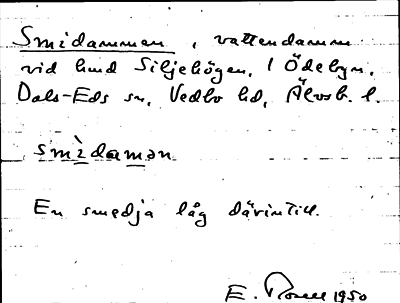 Smidammen, vattendamm
vid lund Siljehögen, i Ödebyn,
Dals-Eds sn, Vedbo hd, Älvsb. l.
smìdamən
En smedja låg därintill.
E. 1950